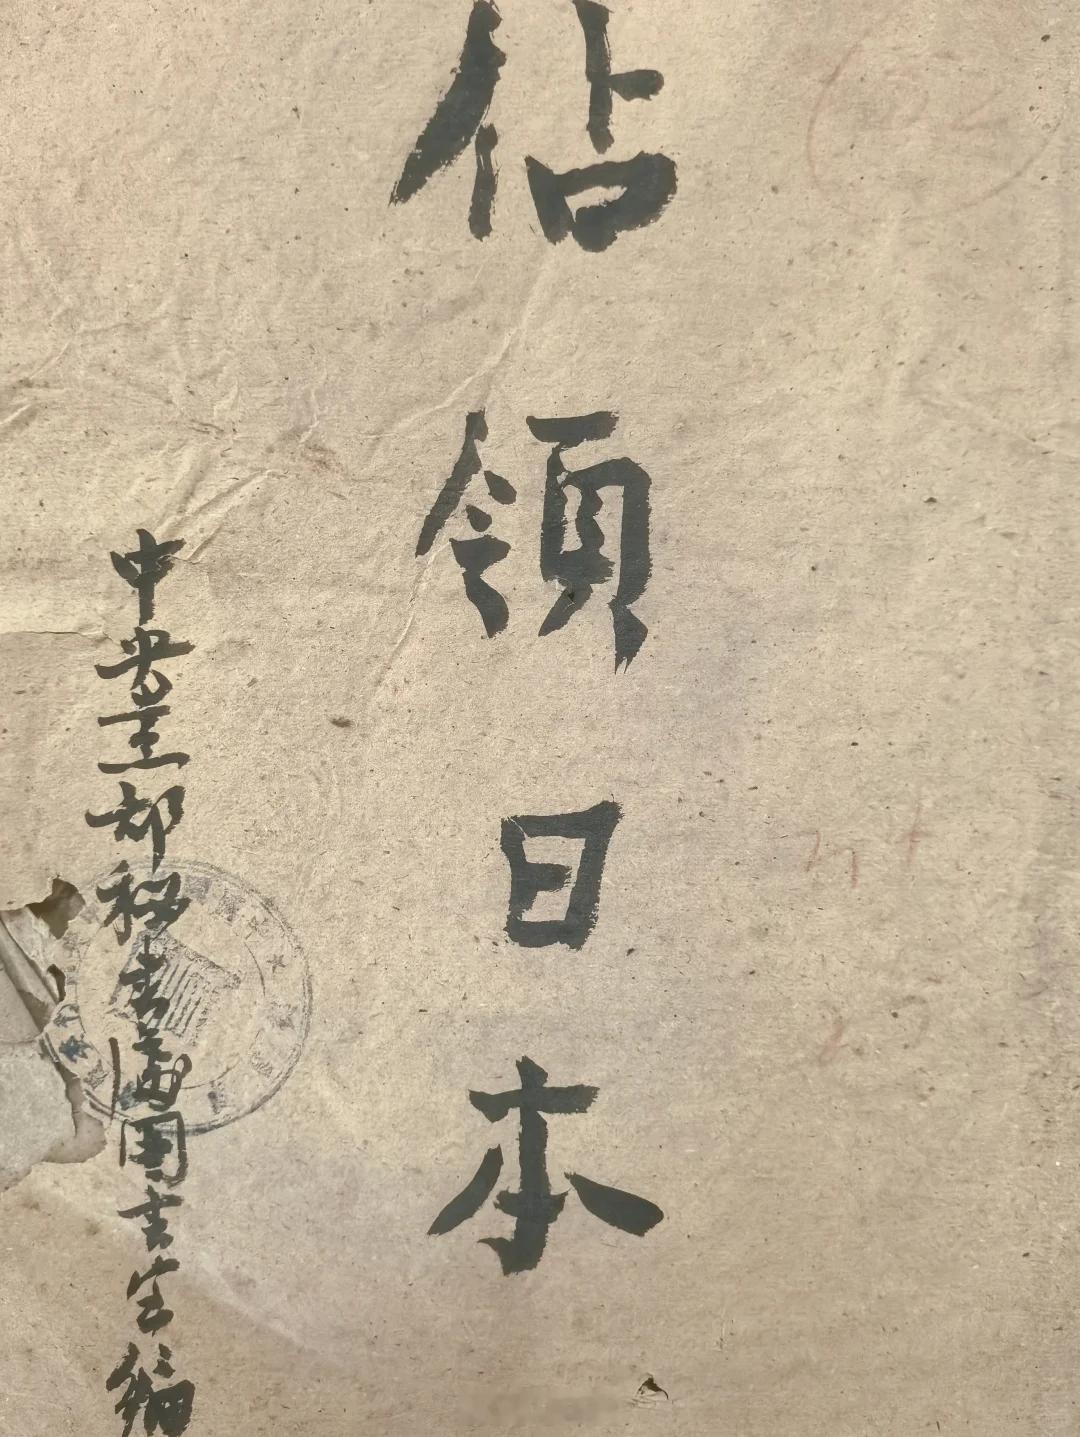 佔領日本
中央黨部秘書處圖書室編